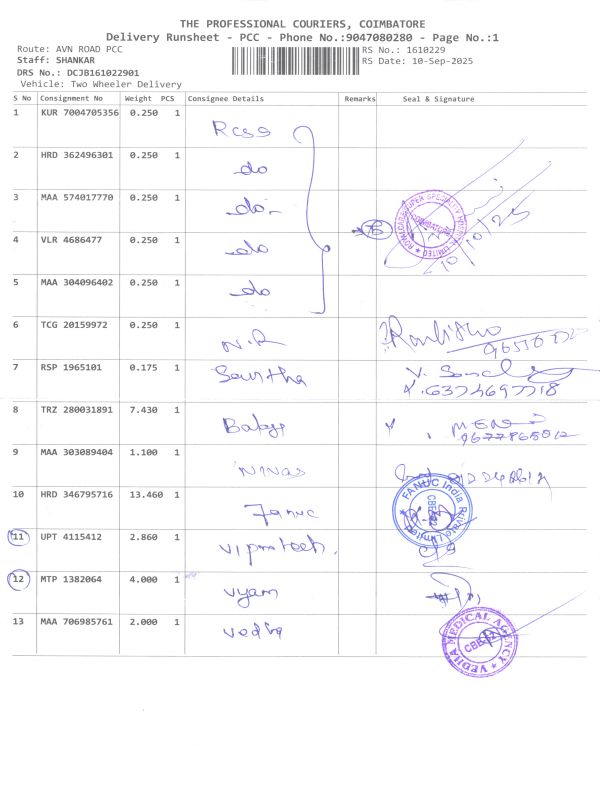 THE PROFESSIONAL COURIERS, COIMBATORE
Delivery Runsheet - PCC - Phone No.:9047080280 - Page No.:1
Route: AVN ROAD PCC
RS No.: 1610229
Staff: SHANKAR
RS Date: 10-Sep-2025
DRS No.: DCJB161022901
Vehicle: Two Wheeler Delivery
S No Consignment No Weight PCS Consignee Details Remarks Seal & Signature
1 KUR 7004705356 0.250 1
2 HRD 362496301 0.250 1 do
3 MAA 574017770 0.250 1 do
4 VLR 4686477 0.250 1 do
5 MAA 304096402 0.250 1 do
10/10/25
6 TCG 20159972 0.250 1 N.R
7 RSP 1965101 0.175 1
8 TRZ 280031891 7.430 1
9 MAA 303089404 1.100 1
10 HRD 346795716 13.460 1 Fanuc
FANUC India Private Limited
11 UPT 4115412 2.860 1
12 MTP 1382064 4.000 1 Vyam
13 MAA 706985761 2.000 1 Vedha
VEDHA MEDICAL AGENCY